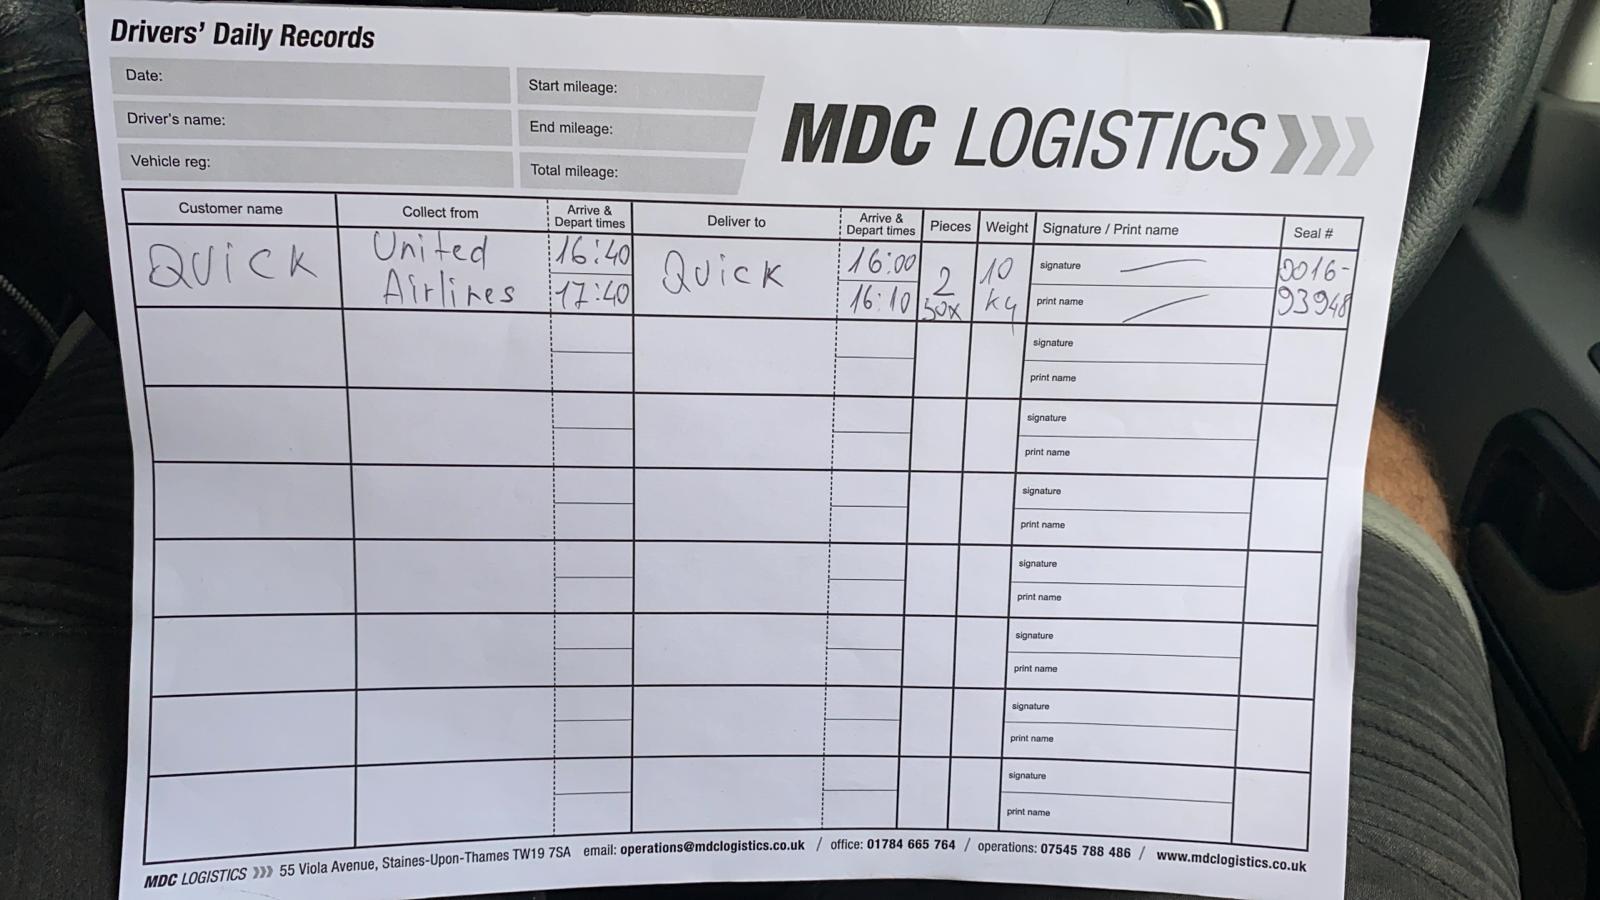 Drivers' Daily Records
Date:
Start mileage:
Driver's name:
End mileage:
Vehicle reg:
Total mileage:
MDC LOGISTICS
Customer name
Collect from
Arrive &
Depart times
Deliver to
Arrive &
Depart times
Pieces
Weight
Signature / Print name
Seal #
QUICK
United
Airlines
16:40
17:40
QUICK
16:00
16:10
2
BOX
10
kg
signature
print name
0016-
93948
signature
print name
signature
print name
signature
print name
signature
print name
signature
print name
signature
print name
signature
print name
MDC LOGISTICS 55 Viola Avenue, Staines-Upon-Thames TW19 7SA email: operations@mdclogistics.co.uk / office: 01784 665 764 / operations: 07545 788 486 / www.mdclogistics.co.uk